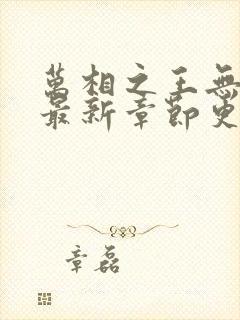 萬相之王無
最新章節更
章磊